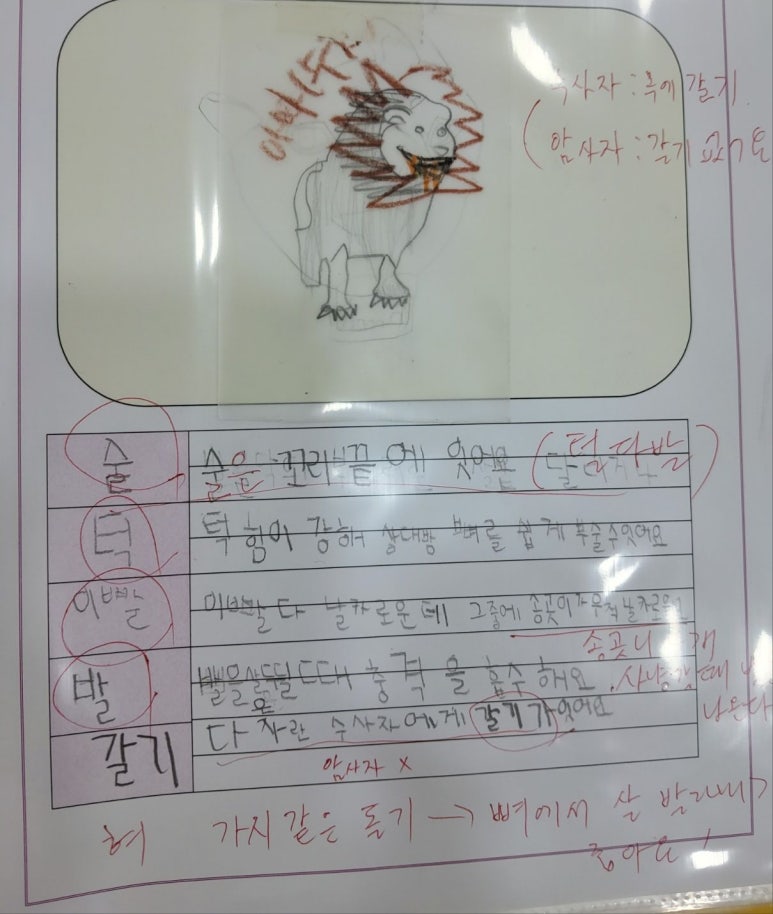 수사자 : 목에 갈기
암사자 : 갈기 없어요
술
술은 꼬리 끝 에 있어요 (털 다발)
턱
턱 힘이 강해 상대방 뼈를 쉽 게 부술수있어요
이빨
이빨 다 날카로운데 그중에 송곳이가
송곳니 개
발
충격 을 흡수 해요
사냥감
갈기
다 자란 수사자에게 갈기가있어요
암사자 X
혀 가시같은 돌기 → 뼈에서 살 발라내기
좋아요 !